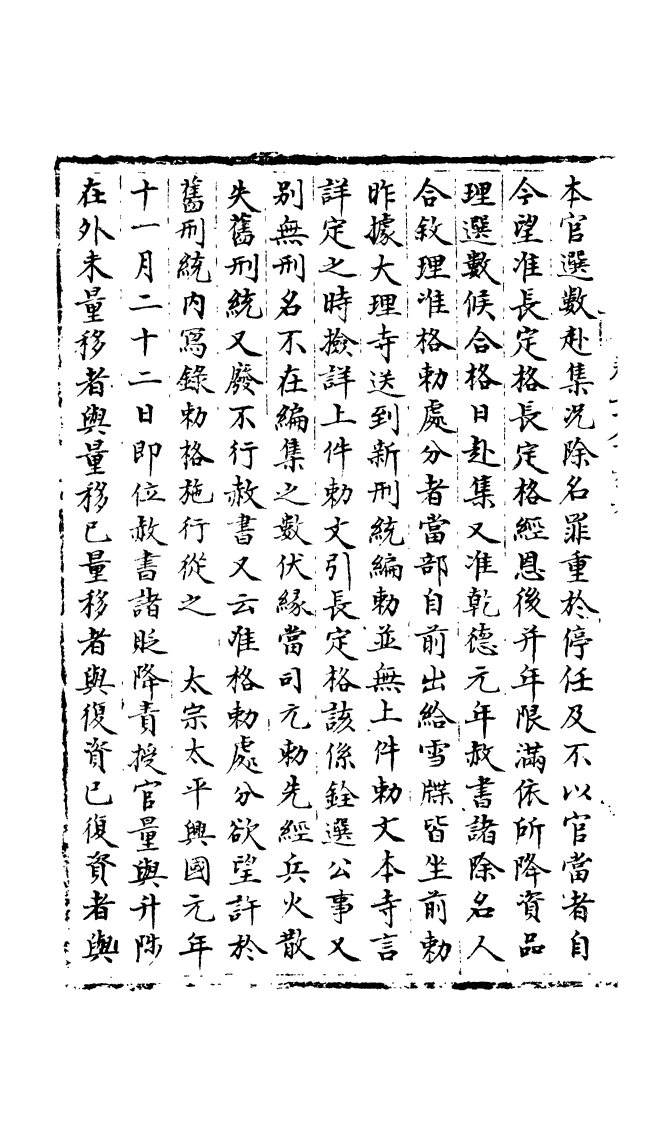 本官選數赴集况除名罪重於停任及不以官當者自
今望准長定格長定格經恩後并年限滿依所降資品
理選數候合格日赴集又准乾德元年赦書諸除名人
合敘理准格勅處分者當部自前出給雪牒皆坐前勅
昨據大理寺送到新刑統編勅並無上件勅文本寺言
詳定之時撿詳上件勅文引長定格該係銓選公事又
别無刑名不在編集之數伏緣當司元勅先經兵火散
失舊刑統又廢不行赦書又云准格勅處分欲望許於
舊刑統内寫錄勅格施行從之　太宗太平興國元年
十一月二十二日即位赦書諸貶降責授官量與升陟
在外未量移者與量移已量移者與復資已復資者與